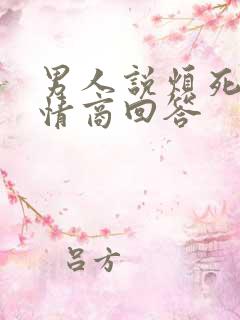 男人説煩死
情商回答
吕方